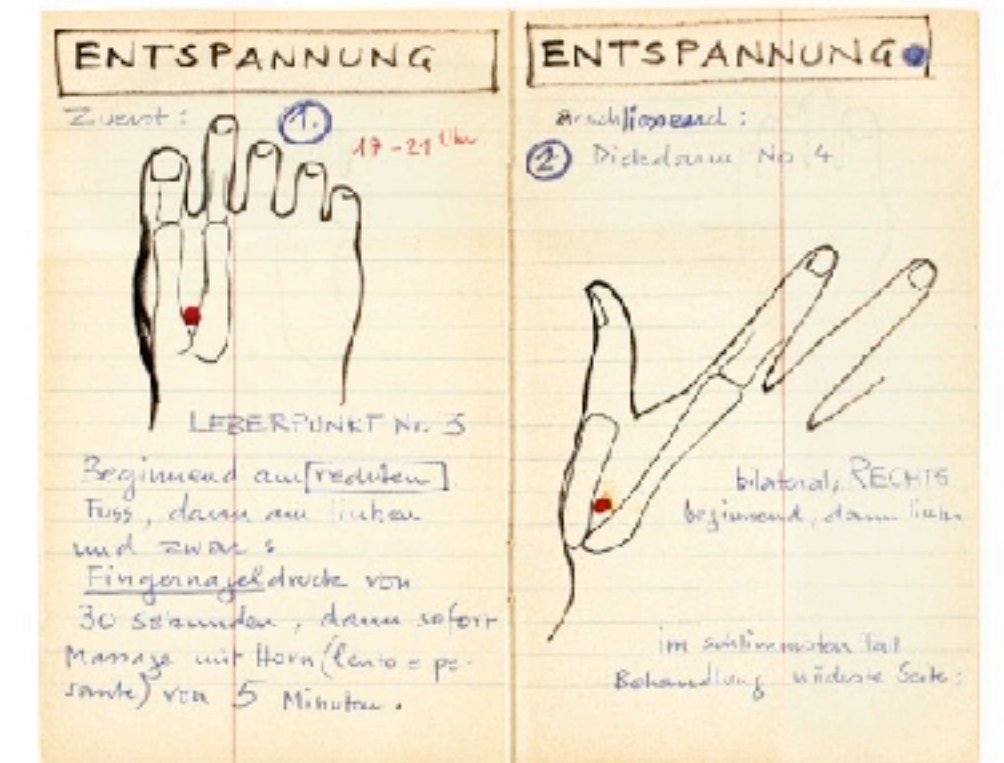 ENTSPANNUNG
Zuerst:
1.
17-21 Uhr
LEBERPUNKT Nr. 3
Beginnend am rechten
Fuss, dann am linken
und zwar:
Fingernageldrucke von
30 sekunden, dann sofort
Massage mit Horn (lento = pe-
sante) von 5 Minuten.
ENTSPANNUNG
anschliessend:
2 Dickdarm No 4
bilateral, RECHTS
beginnend, dann links
im schlimmsten Fall
Behandlung nächste Seite: